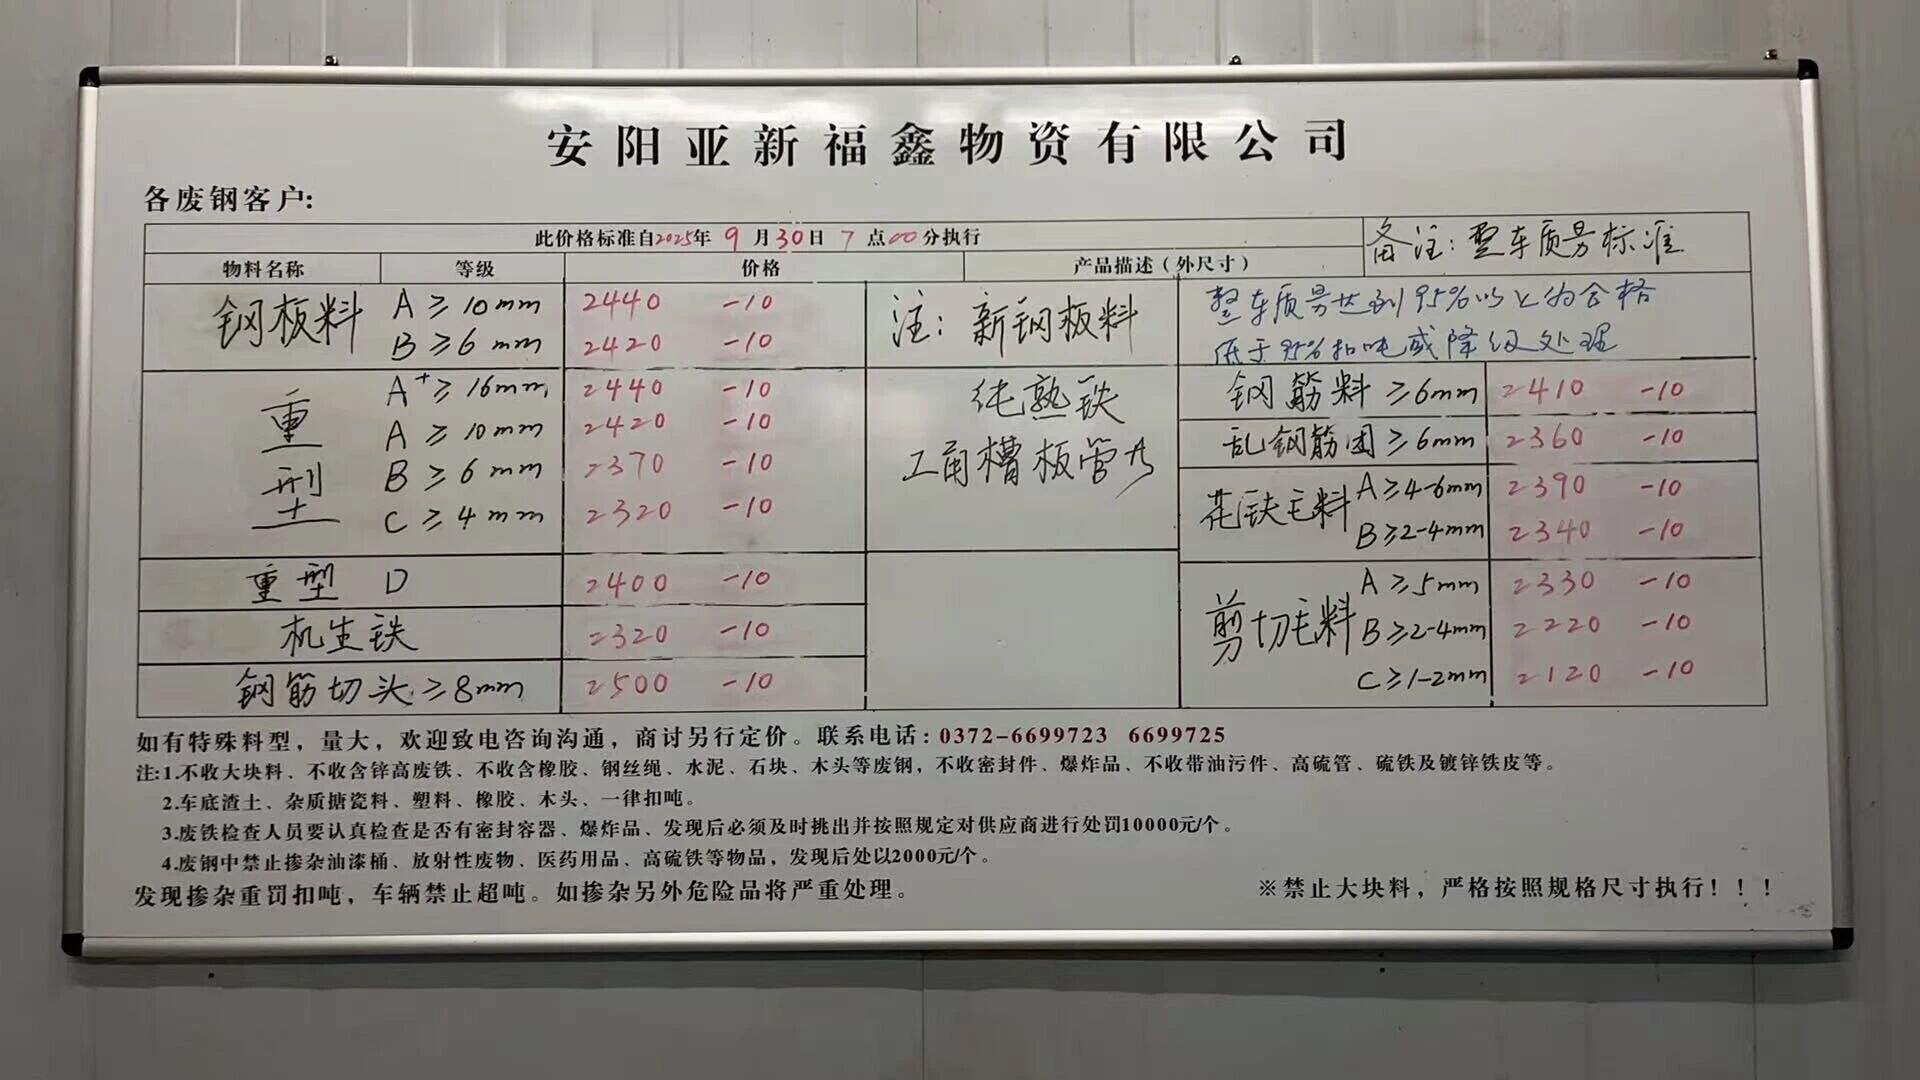 安阳亚新福鑫物资有限公司
各废钢客户:
此价格标准自2025年 9 月 30日 7 点00分执行
备注: 整车质量标准
物料名称 等级 价格 产品描述(外尺寸)
钢板料 A ≥ 10mm 2440 -10
B ≥ 6 mm 2420 -10
注: 新钢板料
整车质量达到95%以上为合格
低于95%扣吨或降级处理
重型 A+ ≥ 16mm 2440 -10
A ≥ 10mm 2420 -10
B ≥ 6 mm 2370 -10
C ≥ 4 mm 2320 -10
纯熟铁
工角槽板管
重型 D 2400 -10
机生铁 2320 -10
钢筋切头 ≥8mm 2500 -10
钢筋料 ≥6mm 2410 -10
乱钢筋团 ≥6mm 2360 -10
花铁毛料 A ≥4-6mm 2390 -10
B ≥2-4mm 2340 -10
剪切毛料 A ≥5mm 2330 -10
B ≥2-4mm 2220 -10
C ≥1-2mm 2120 -10
如有特殊料型，量大，欢迎致电咨询沟通，商讨另行定价。联系电话: 0372-6699723 6699725
注:1.不收大块料、不收含锌高废铁、不收含橡胶、钢丝绳、水泥、石块、木头等废钢，不收密封件、爆炸品、不收带油污件、高硫管、硫铁及镀锌铁皮等。
2.车底渣土、杂质搪瓷料、塑料、橡胶、木头、一律扣吨。
3.废铁检查人员要认真检查是否有密封容器、爆炸品、发现后必须及时挑出并按照规定对供应商进行处罚10000元/个。
4.废钢中禁止掺杂油漆桶、放射性废物、医药用品、高硫铁等物品，发现后处以2000元/个。
发现掺杂重罚扣吨，车辆禁止超吨。如掺杂另外危险品将严重处理。
※禁止大块料，严格按照规格尺寸执行！！！